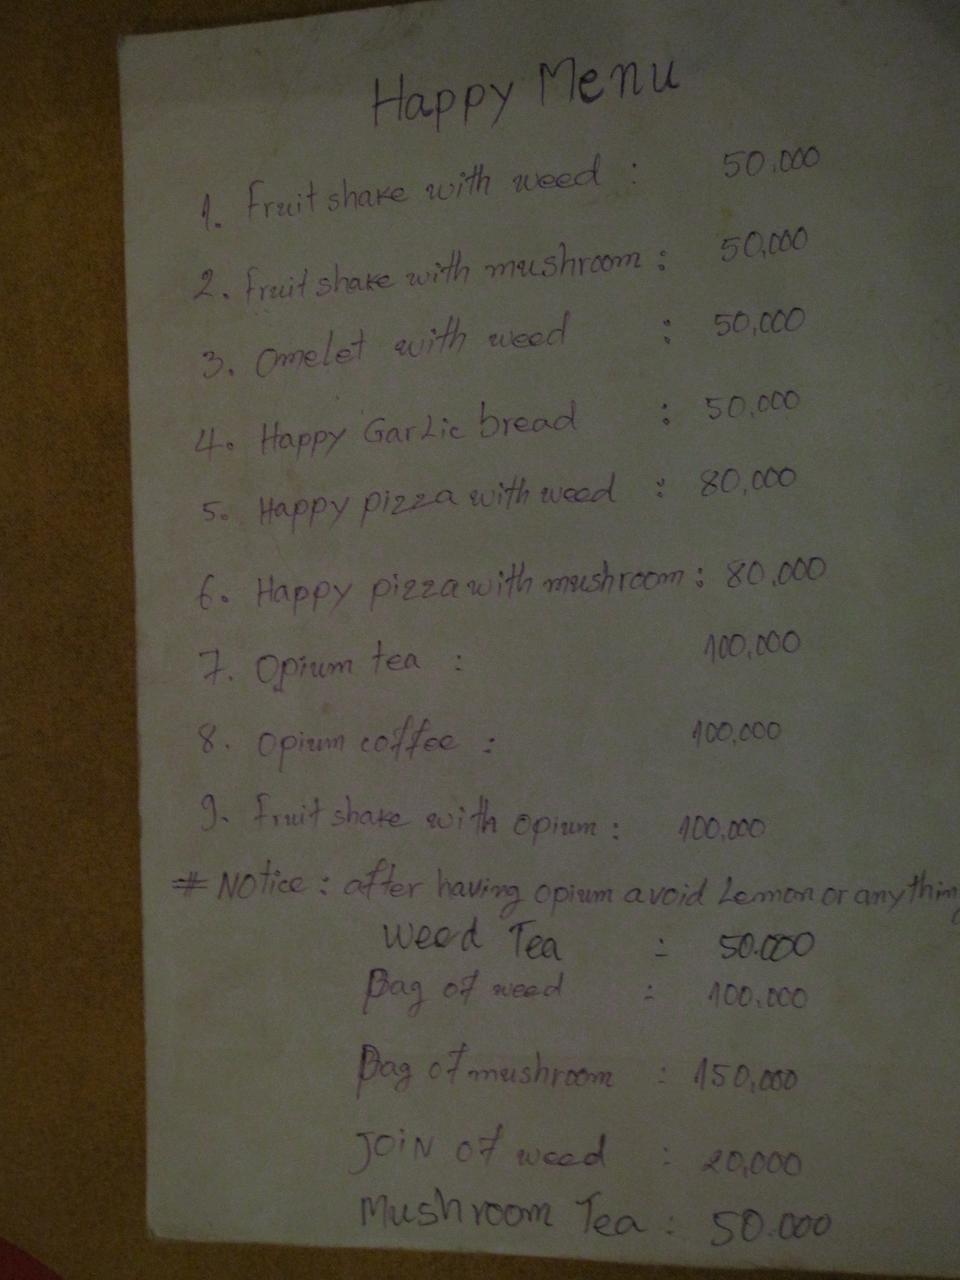 Happy Menu
1. Fruit shake with weed : 50.000
2. Fruit shake with mushroom : 50,000
3. Omelet with weed : 50,000
4. Happy Garlic bread : 50,000
5. Happy pizza with weed : 80,000
6. Happy pizza with mushroom : 80.000
7. Opium tea : 100,000
8. Opium coffee : 100,000
9. Fruit shake with opium : 100,000
# NOtice : after having opium avoid Lemon or anythin
Weed Tea : 50.000
Bag of weed : 100.000
Bag of mushroom : 150,000
JOiN of weed : 20,000
Mushroom Tea : 50.000